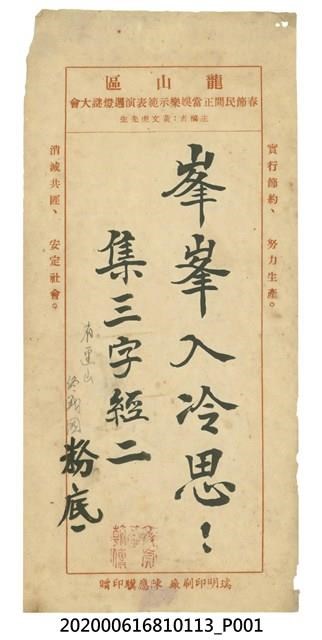 龍山區
春節民間正當娛樂示範表演週燈謎大會
主編者：黃文虎先生
實行節約、努力生產。
峯峯入冷思！
集三字經二
粉底
消滅共匪、安定社會。
瑞明印刷廠 陳應驥印贈
202000616810113_P001